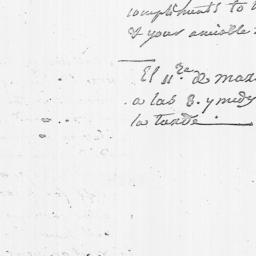 compliments to
& your amiable
El 11 de mar
a las 8. y med
la tarde.